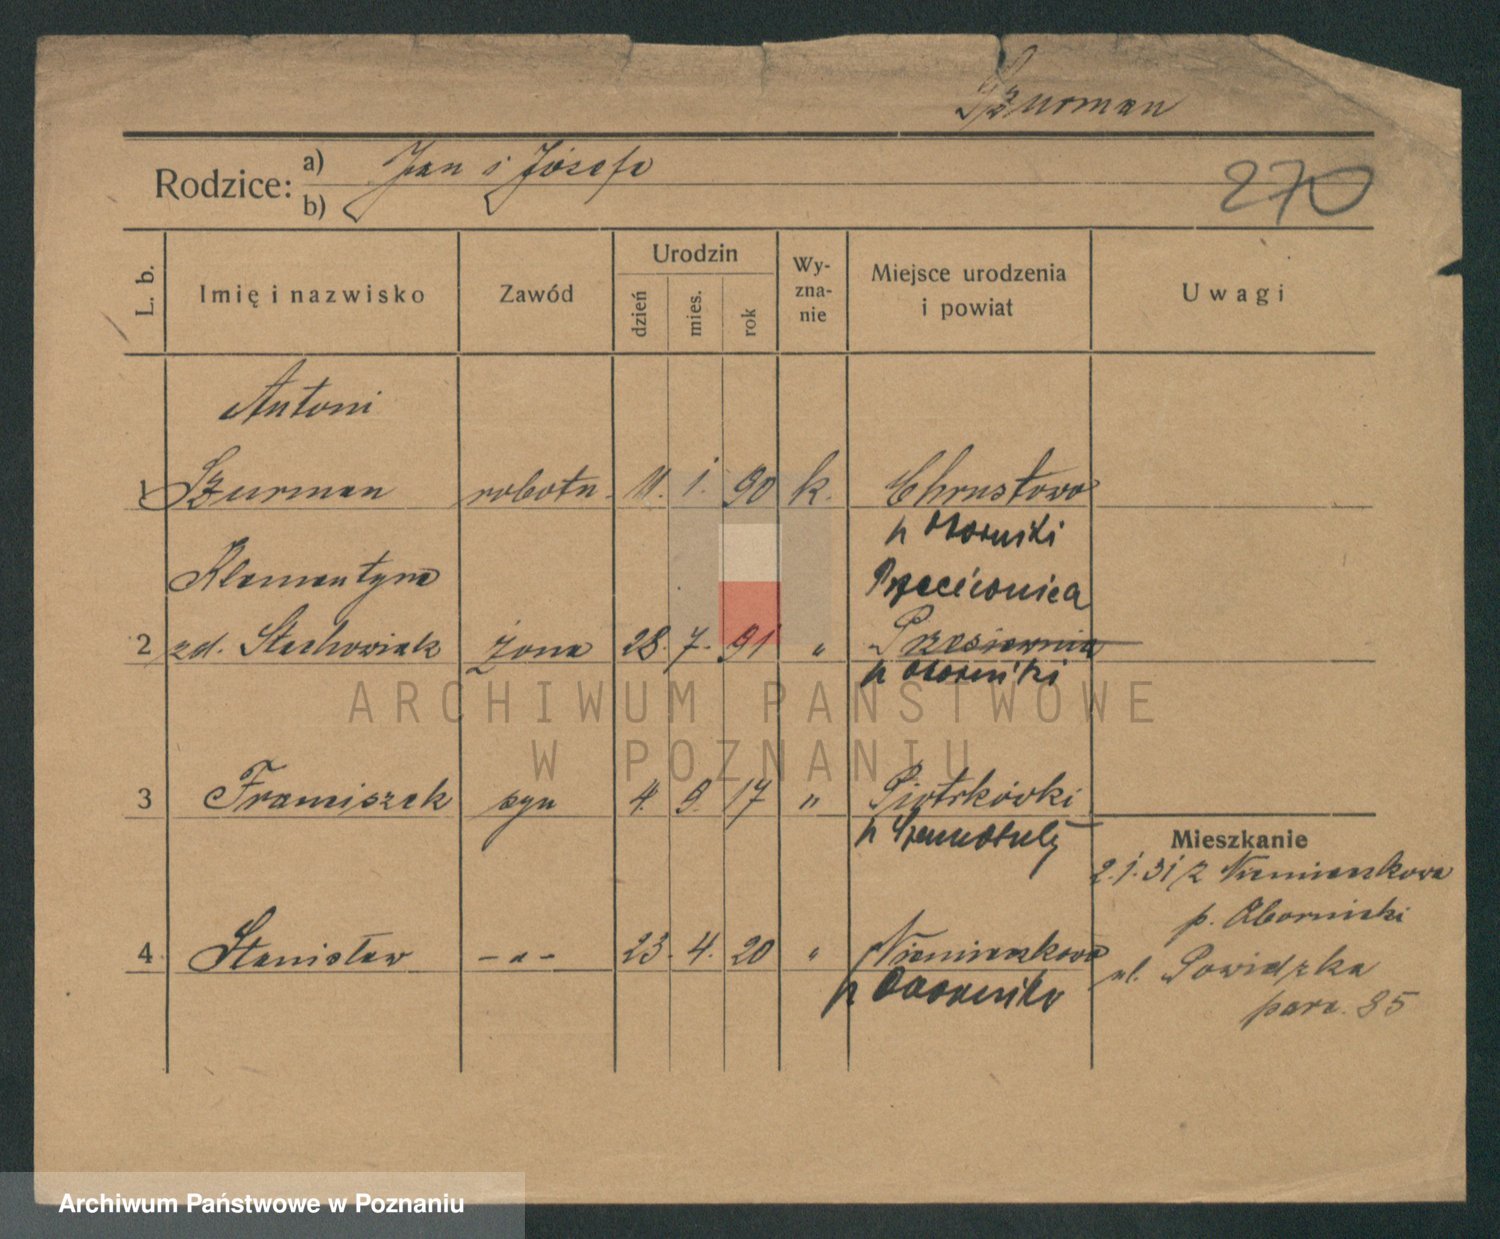 Szurman
Rodzice: a) Jan i Józefa
b)
270
L. b.
Imię i nazwisko
Zawód
Urodzin
dzień
mies.
rok
Wy-
zna-
nie
Miejsce urodzenia
i powiat
Uwagi
Antoni
1 Szurman robotn. 11. 1. 90 k. Chrustowo
p Oborniki
Klementyna Przeciwnica
2 zd. Stachowiak żona 28. 7. 91 " Przesiewnia
p Oborniki
ARCHIWUM PAŃSTWOWE
W POZNANIU
3 Franciszek syn 4. 9. 17 " Piotrkówki
p Szamotuły
Mieszkanie
2.1.31 z Niemieczkowa
p. Obornicki
4 Stanisław - " - 23. 4. 20 " Niemieczkowo
p Oborniki
ul. Powidzka
parc. 85
Archiwum Państwowe w Poznaniu